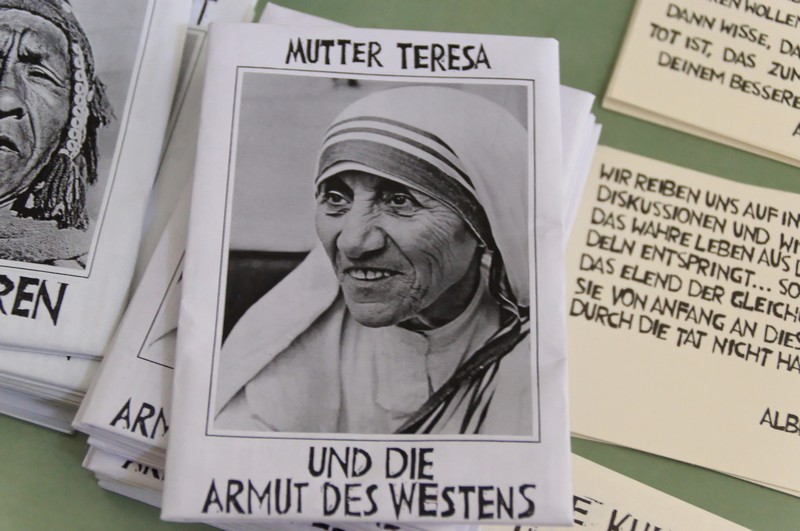 MUTTER TERESA
UND DIE
ARMUT DES WESTENS
WOLLEN
DANN WISSE,
TOT IST, DAS
DEINEM
WIR REIBEN UNS AUF IN
DISKUSSIONEN UND
DAS WAHRE LEBEN AUS
DELN ENTSPRINGT...
DAS ELEND DER
SIE VON ANFANG AN
DURCH DIE TAT NICHT